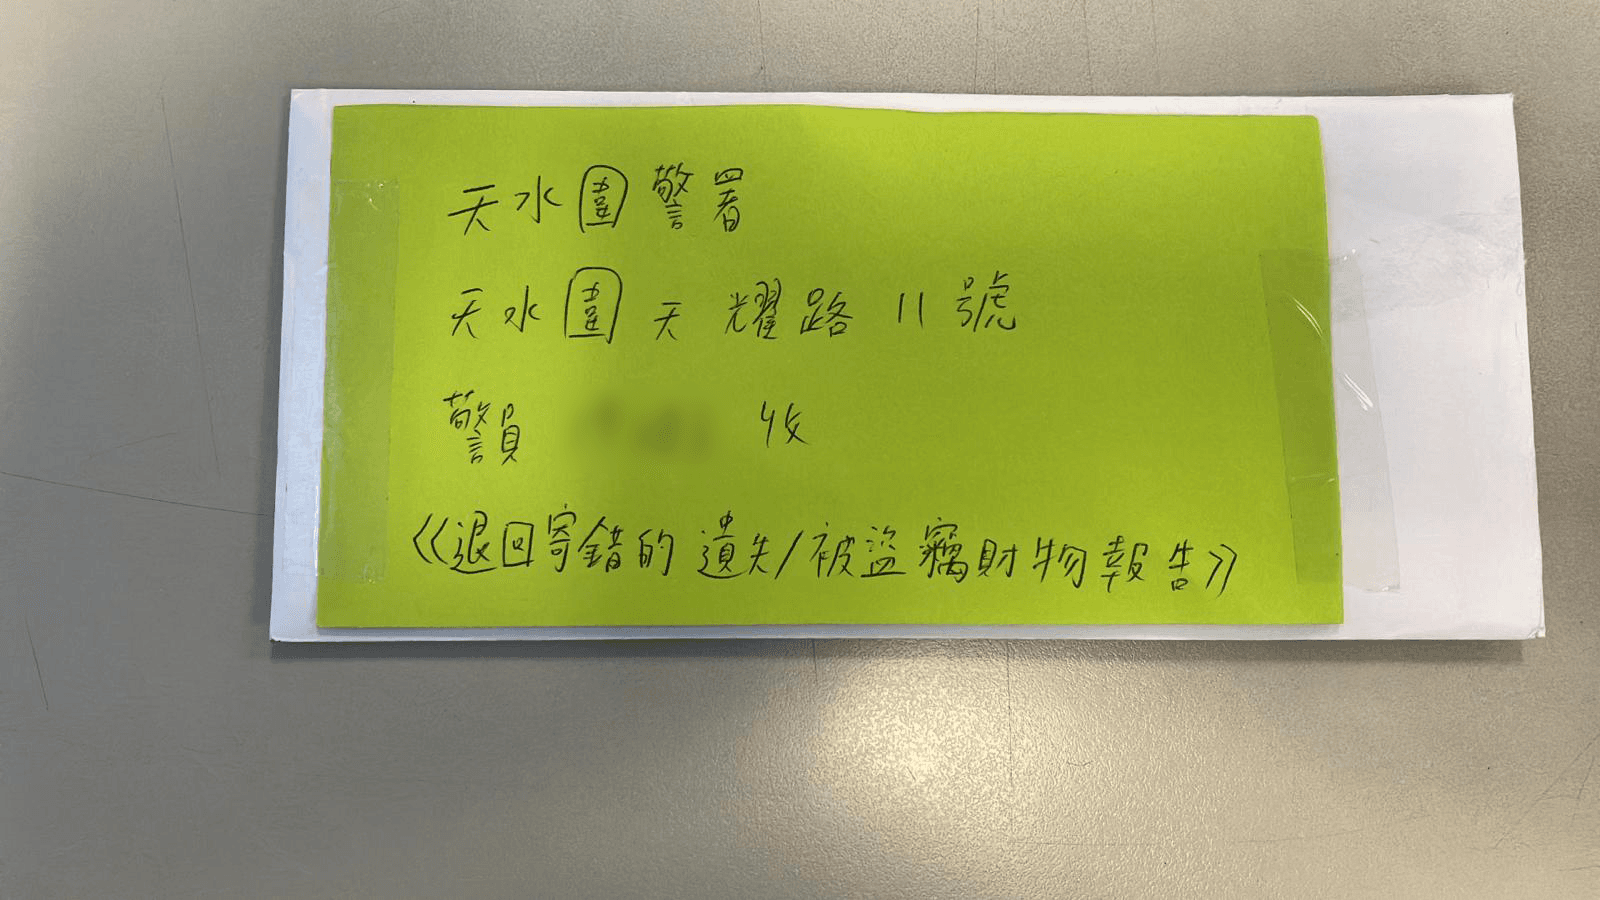 天水圍警署
天水圍天耀路11號
警員 收
《退回寄錯的遺失/被盜竊財物報告》